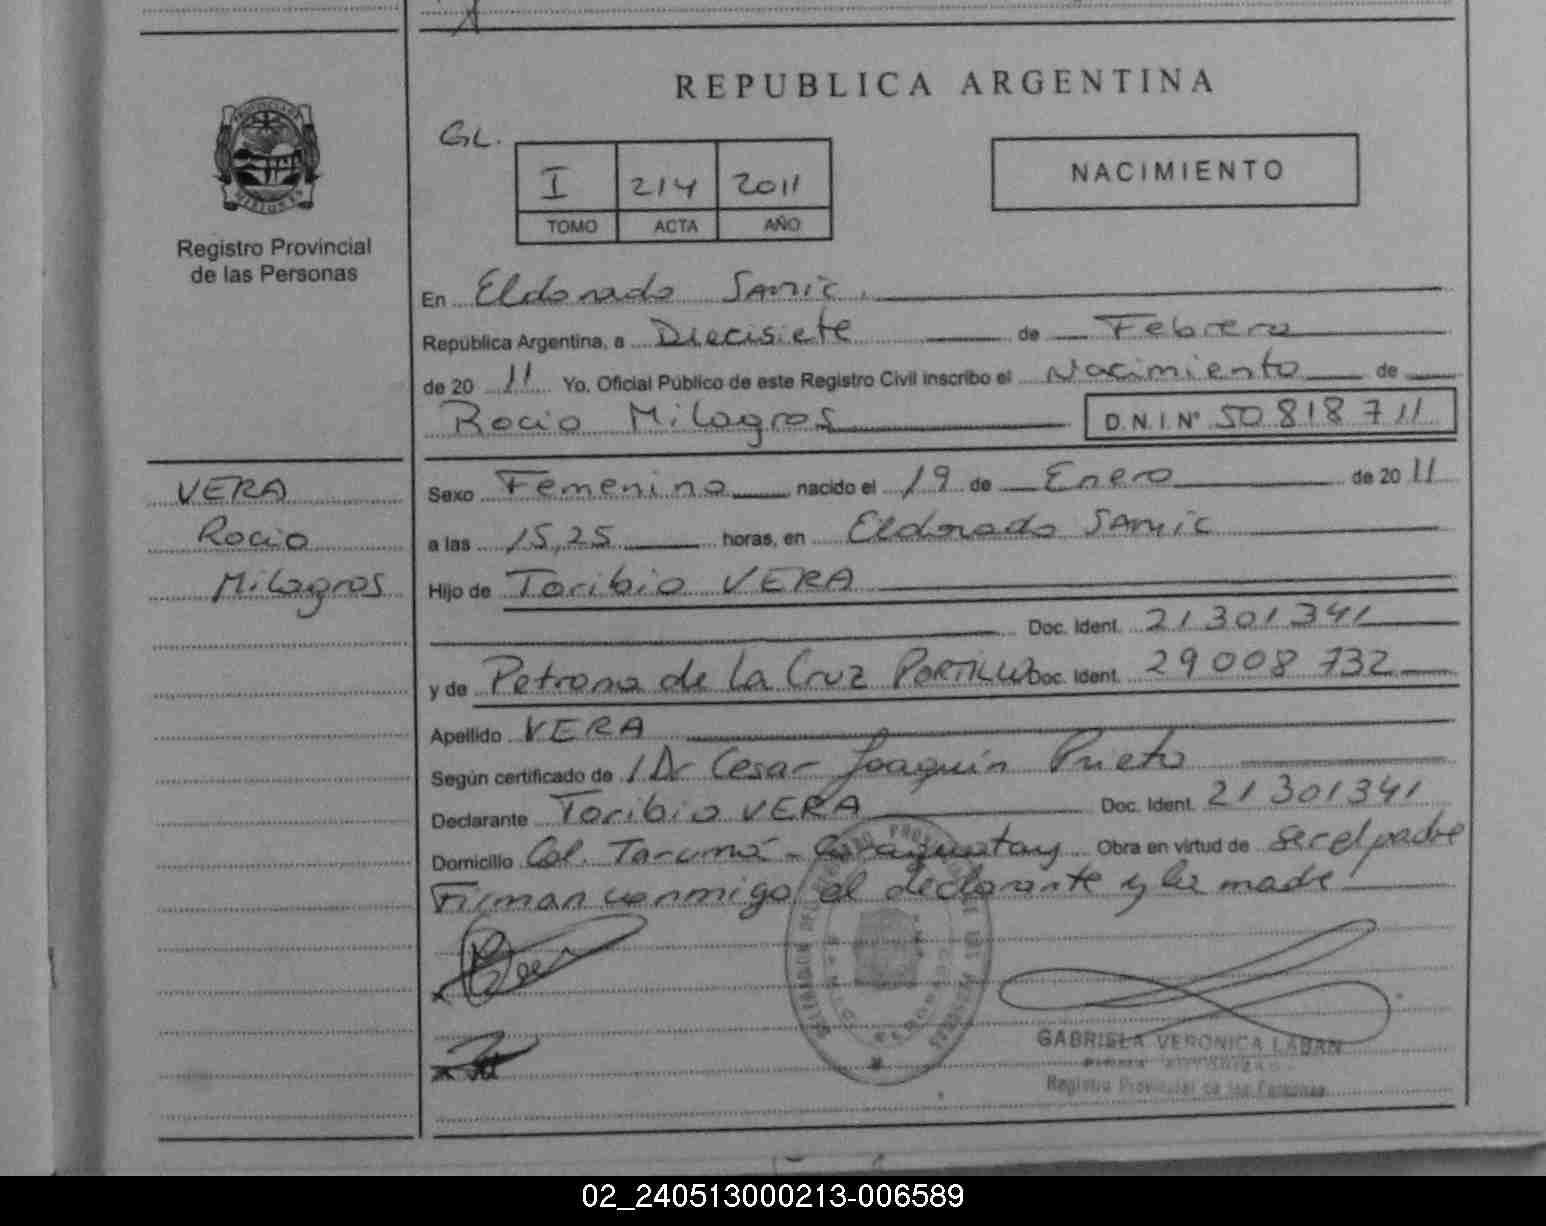 REPUBLICA ARGENTINA
GL.
I 214 2011
TOMO ACTA AÑO
NACIMIENTO
Registro Provincial
de las Personas
En Eldorado SAMIC.
República Argentina, a Diecisiete de Febrero
de 20 11 Yo, Oficial Público de este Registro Civil inscribo el Nacimiento de
Rocio Milagros D.N.I.N° 50 818 711
VERA
Rocio
Milagros
Sexo Femenino nacido el 19 de Enero de 20 11
a las 15,25 horas, en Eldorado SAMIC
Hijo de Toribio VERA
Doc. Ident. 21 301 341
y de Petrona de La Cruz PORTILLO Doc. Ident. 29 008 732
Apellido VERA
Según certificado de Dr Cesar Joaquín Prieto
Declarante Toribio VERA Doc. Ident. 21 301341
Domicilio Col. Tarumá - Caraguatay Obra en virtud de ser el padre
Firman conmigo el declarante y la madre
GABRIELA VERONICA LABAN
FIRMA AUTORIZADA
Registro Provincial de las Personas
02_240513000213-006589